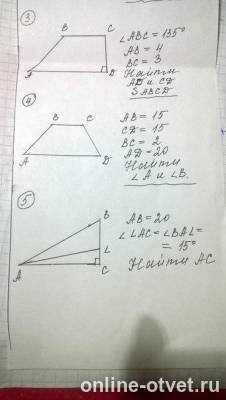 3
B C
A D
∠ABC = 135°
AB = 4
BC = 3
Найти
AD и CD
SABCD
4
B C
A D
AB = 15
CD = 15
BC = 2
AD = 20
Найти
∠A и ∠B.
5
B
L
A C
AB = 20
∠LAC = ∠BAL =
= 15°
Найти AC
online-otvet.ru